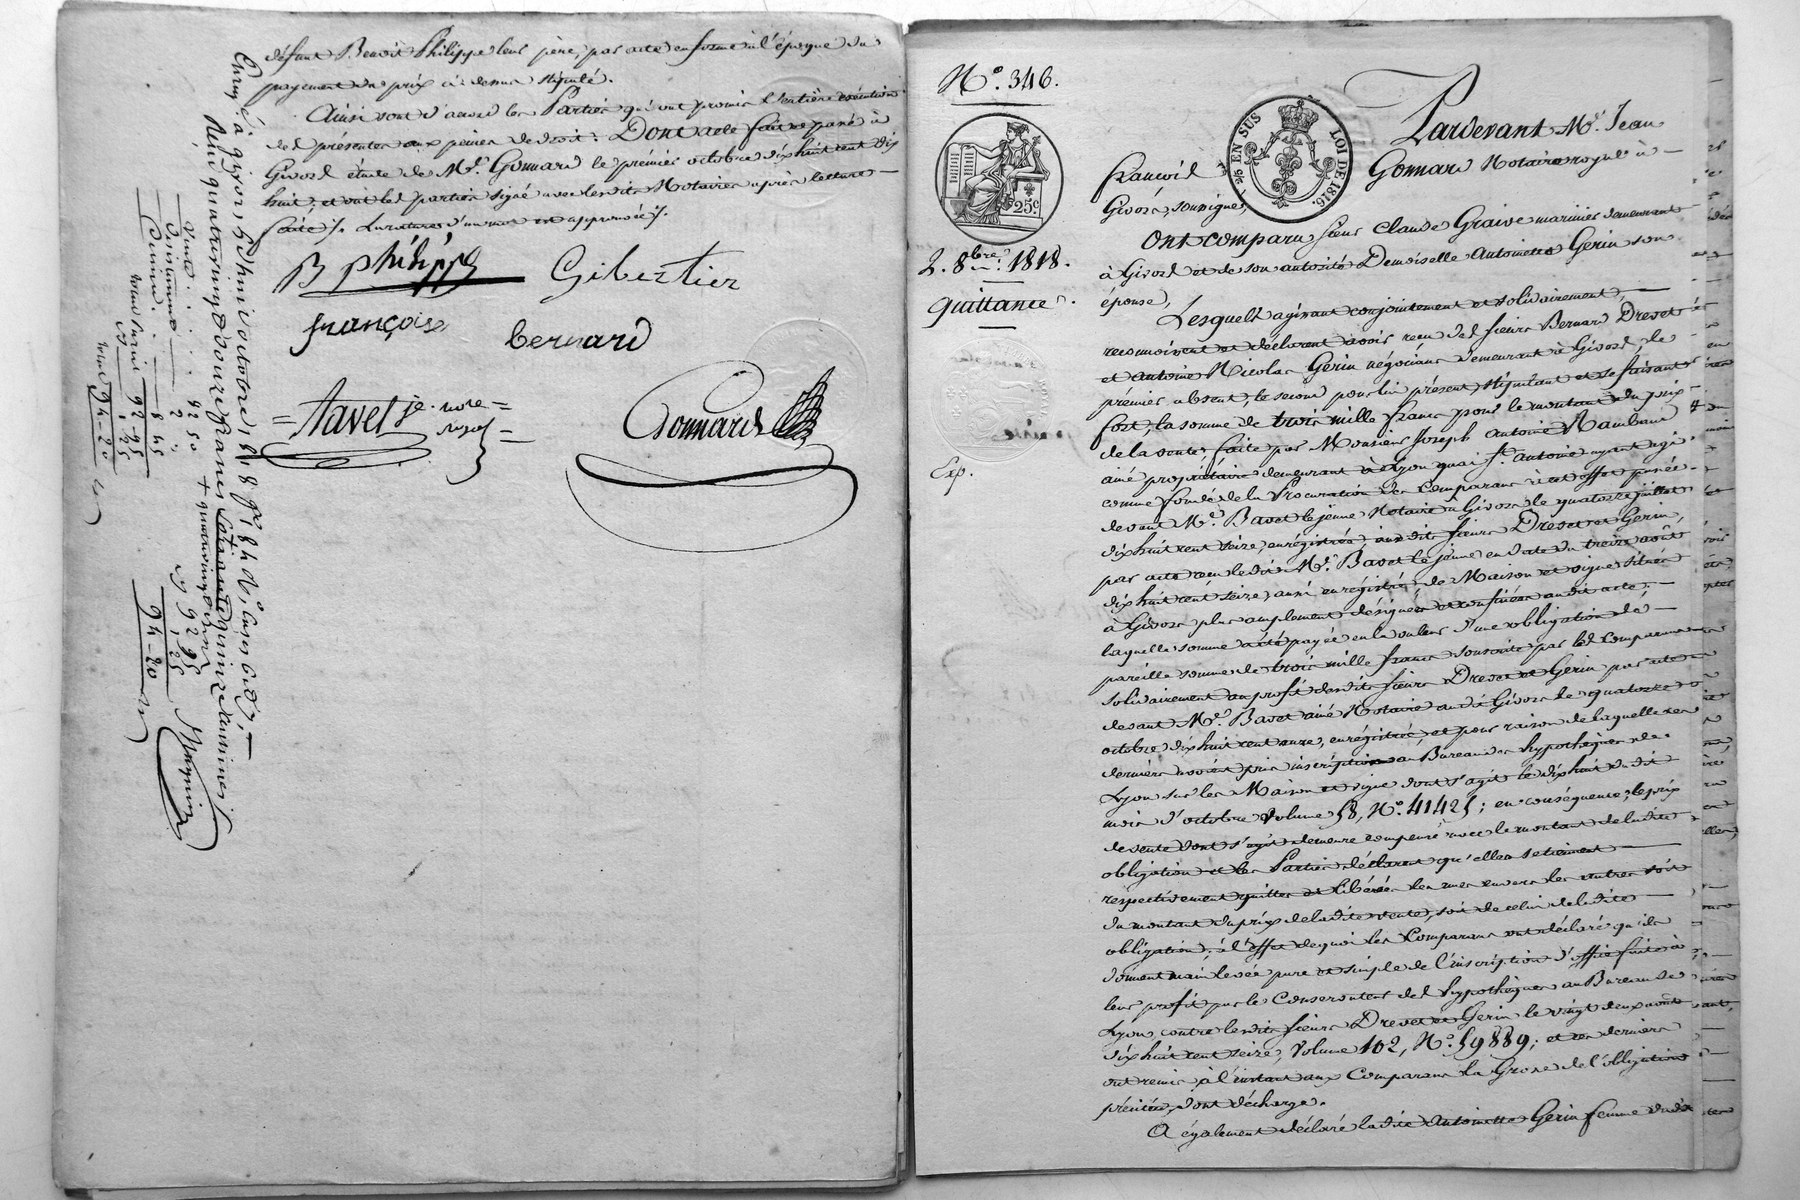 défunt Benoit Philippe leur père, par acte en forme à l'époque du
payement du prix ci-dessus stipulé.
Ainsi sont d'accord les Parties qui ont promis l'entière exécution
des présentes aux peines de droit: Dont acte fait et passé à
Givors étude de Me. Gonnard le premier octobre dix huit cent dix
huit; et ont les parties signé avec lesdits Notaires après lecture
faite ./. La rature d'un mot est approuvée ./.
B philippe Gibertier
françois bernard
= Bavet je. nore =
royal =
Gonnard
Enregé. à givors, le
Reçu quatre vingt douze francs cinquante quinze centimes
vingt
92 50
2
Dixieme
8 45
92-95
1 25
94-20
92 95
1,25
94-20
No. 346.
EN SUS LOI DE 1816.
25c.
2. 8bre. 1818.
Quittance.
Exp.
Pardevant Me. Jean
françois Gonnard Notaire royal à
Givors, soussigné,
Ont comparu sieur Claude Graive marinier demeurant
à Givors et de son autorité Demoiselle Antoinette Gerin son
épouse,
Lesquels agissant conjointement et solidairement,
reconnoissent et déclarent avoir reçu des sieurs Bernard Drevet
et Antoine Nicolas Gerin négocians demeurant à Givors, le
premier absent, le second pour lui présent, stipulant et se faisant
fort, la somme de trois mille francs pour le montant du prix
de la vente faite par Monsieur Joseph Antoine Rambaud
ainé propriétaire demeurant à Lyon quai St. Antoine, ayant agi
comme fondé de la Procuration des Comparans à cet effet passée
devant Me. Bavet le jeune Notaire à Givors le quatorze juillet
dix huit cent seize, enregistrée, aux dits sieurs Drevet et Gerin,
par acte reçu ledit Me. Bavet le jeune en date du treize août
dix huit cent seize, aussi enregistré, de Maison et vigne situés
à Givors plus amplement désignés et confinés audit acte;
laquelle somme a été payée en la valeur d'une obligation de
pareille somme de trois mille francs souscrite par les Comparans
solidairement au profit desdits sieurs Drevet et Gerin par acte
devant Me. Bavet ainé Notaire audit Givors le quatorze
octobre dix huit cent onze, enregistré, et pour raison de laquelle ces
derniers avoient pris inscription au Bureau des hypothèques de
Lyon sur les Maison et vigne dont s'agit le dix huit dudit
mois d'octobre Volume 58, No. 41425; en conséquence, le prix
de vente dont s'agit demeure compensé avec le montant de ladite
obligation et les Parties déclarent qu'elles se tiennent
respectivement quittes et libérées les unes envers les autres soit
du montant du prix de ladite vente, soit de celui de ladite
obligation; à l'effet de quoi les Comparans ont déclaré qu'ils
donnent main levée pure et simple de l'inscription d'office faite à
leur profit par le Conservateur des hypothèques au Bureau de
Lyon contre lesdits sieurs Drevet et Gerin le vingt deux août
dix huit cent seize, Volume 102, No. 59889; et ces derniers
ont remis à l'instant aux Comparans la Grosse de l'obligation
précitée, dont décharge.
A également déclaré ladite Antoinette Gerin femme dudit